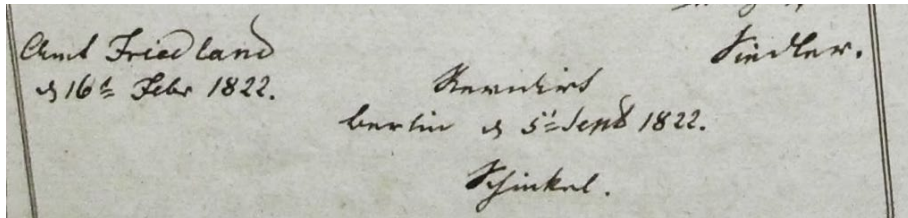 Amt Friedland
d 16t Febr 1822.
Siedler.
Revidirt
berlin d 5t Sept 1822.
Schinkel.